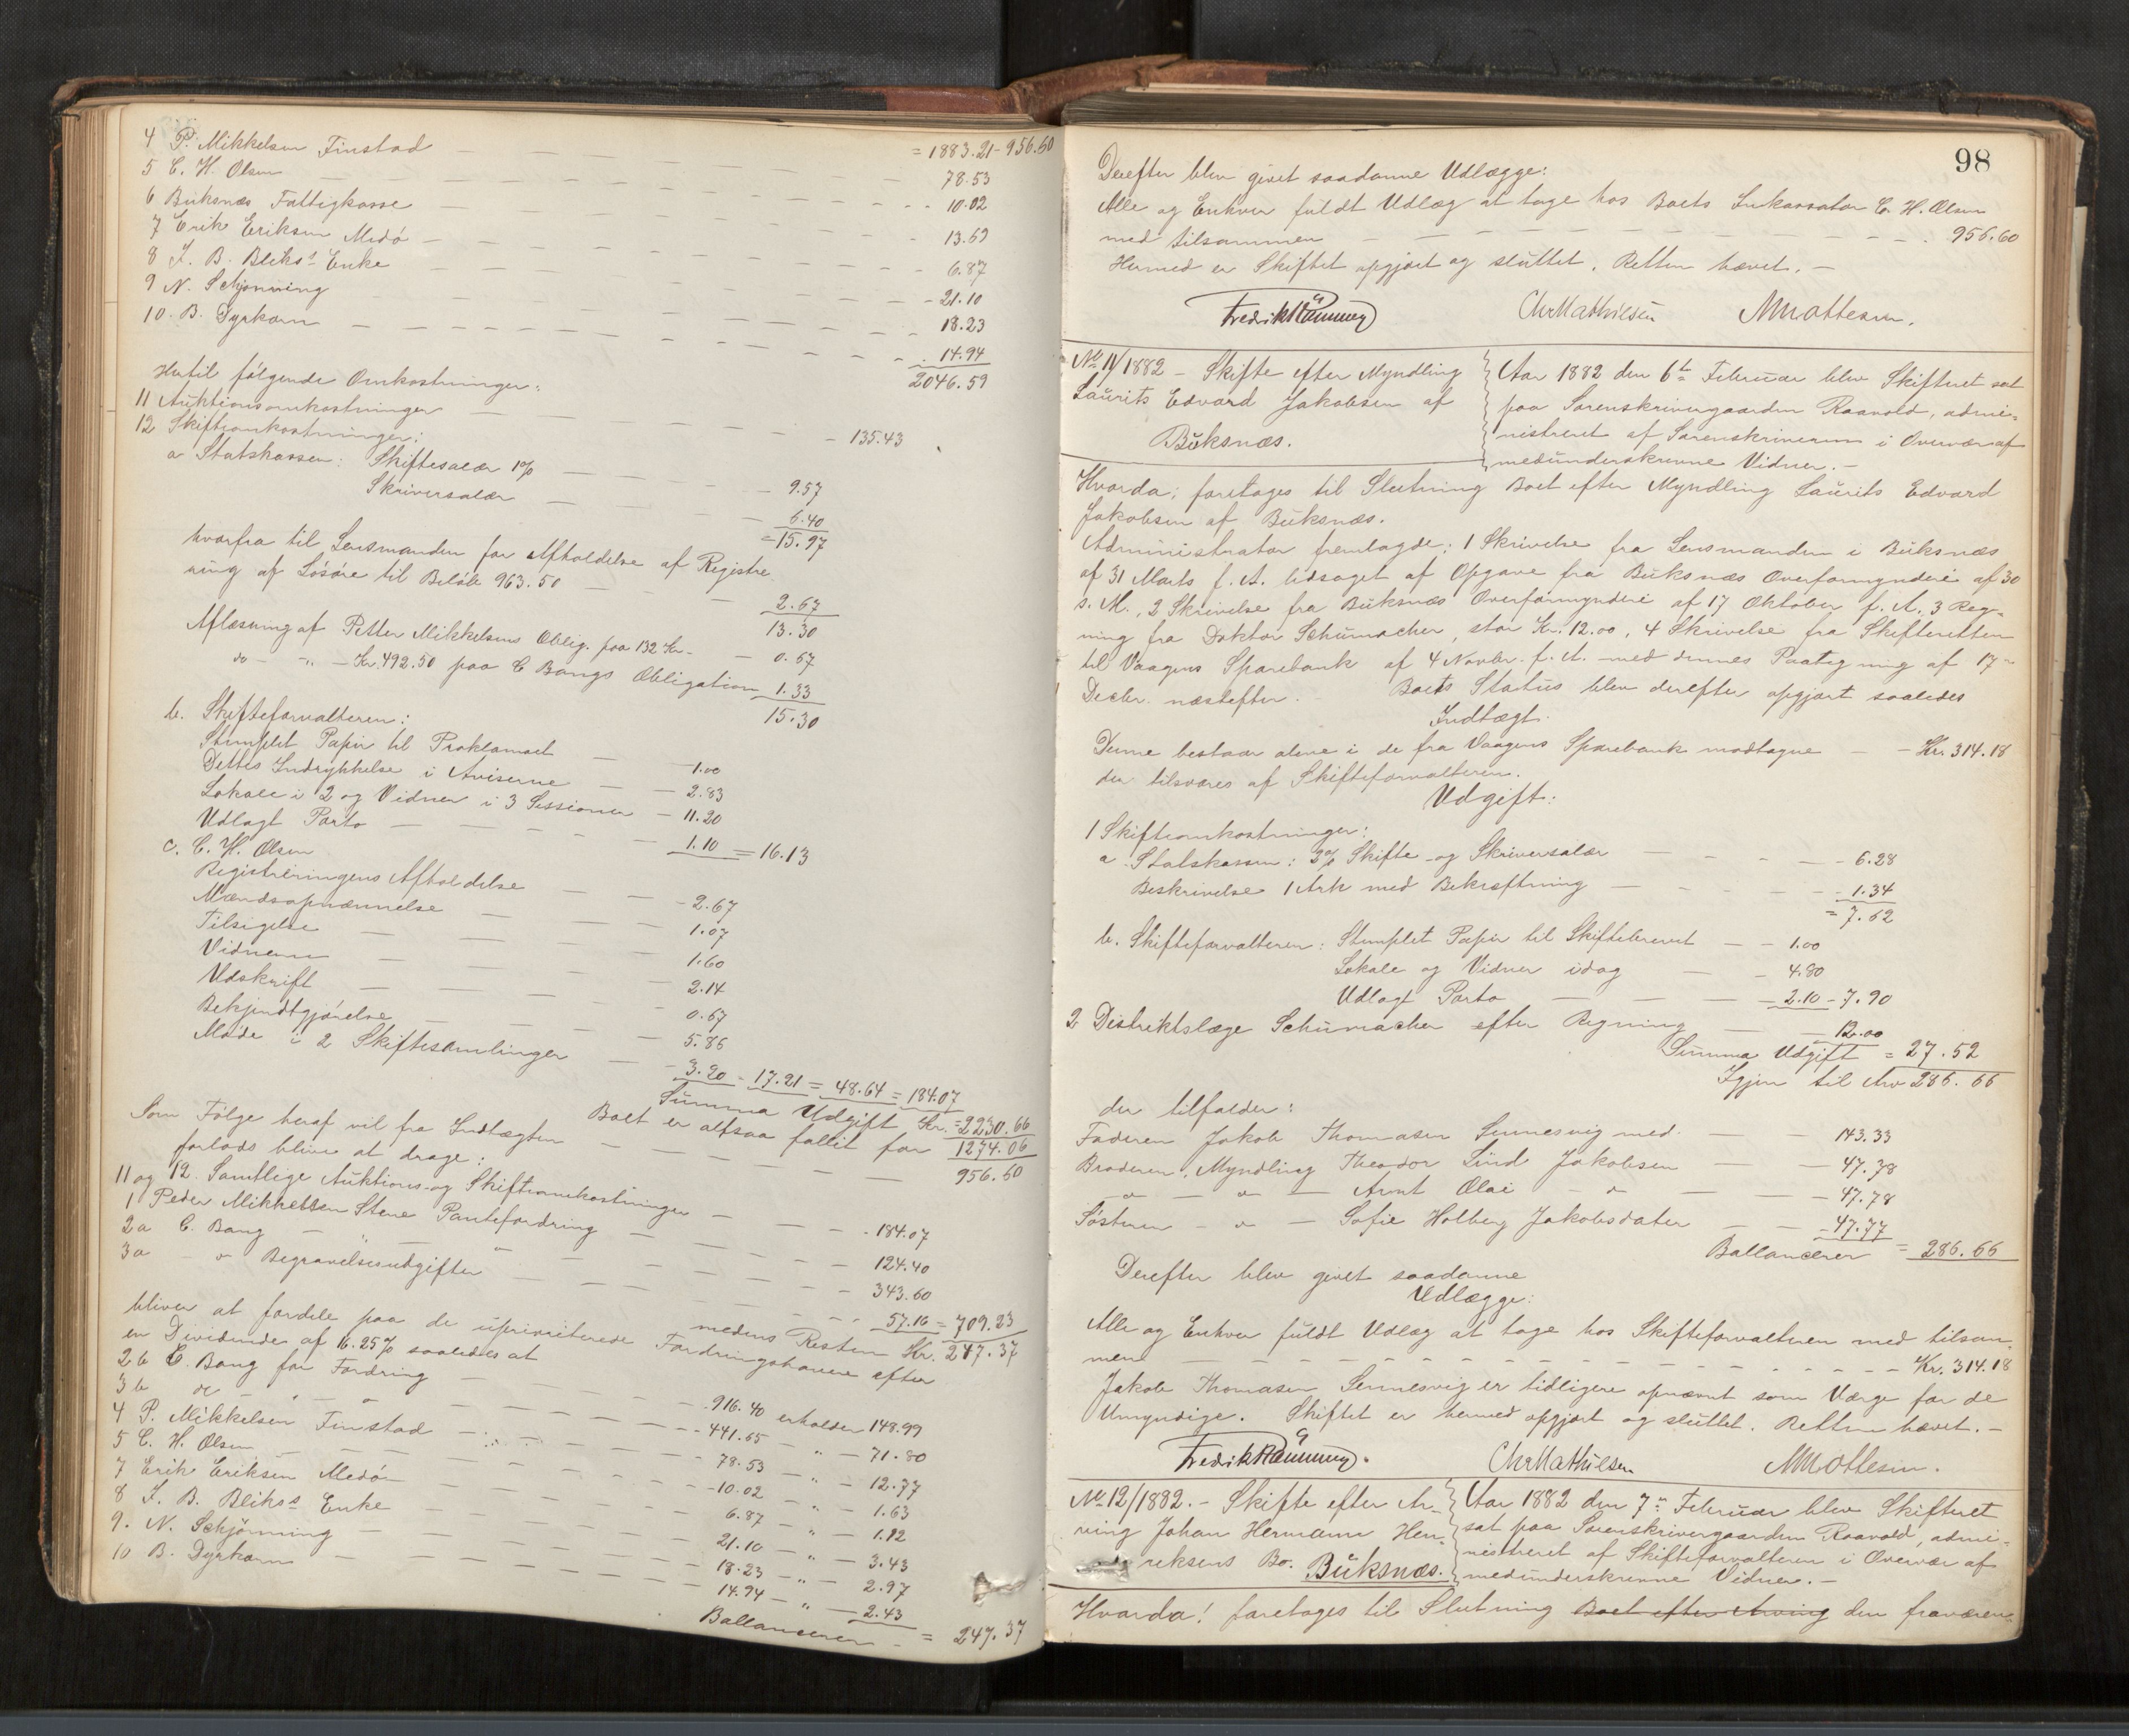 4 P. Mikkelsen Finstad — = 1883.21 - 956.60
5 C. H. Olsen — 78.53
6 Buksnæs Fattigkasse — 10.02
7 Erik Eriksen Medø — 13.69
8 J. B. Bliks's Enke — 6.87
9 N. Schjønning — 21.10
10. B. Dyrkorn — 18.23
14.94
2046.59
Hertil følgende Omkostninger:
11 Auktionsomkostninger — 135.43
12 Skifteomkostninger:
a Statskassen: Skiftesalær 1% — 9.57
Skriversalær — 6.40
= 15.97
hvorfra til Lensmanden for Afholdelse af Registre
ring af Løsøre til Beløb 963.50 — 2.67
13.30
Aflæsning af Petter Mikkelsens Oblig. paa 132 Kr — 0.67
do — " — Kr. 492.50 paa C Bangs Obligation 1.33
15.30
b. Skifteforvalteren:
Stemplet Papir til Proklamaet — 1.00
Dettes Indrykkelse i Aviserne — 2.83
Lokale i 2 og Vidner i 3 Sessioner — 11.20
Udlagt Porto — 1.10 = 16.13
c. C. H. Olsen
Registreringens Afholdelse — 2.67
Mændsopnævnelse — 1.07
Tilsigelse — 1.60
Vidnerne — 2.14
Udskrift — 0.67
Bekjendtgjørelse — 5.86
Møde i 2 Skiftesamlinger — 3.20 - 17.21 = 48.64 = 184.07
Summa Udgift Kr. = 2230.66
Boet er altsaa fallit for 1274.06
Som Følge heraf vil fra Indtægten — 956.60
forlods blive at drage:
11 og 12. Samtlige Auktions- og Skifteomkostninger — 184.07
1 Peder Mikkelsen Stene Pantefordring — 124.40
2a C. Bang — " — " — 343.60
3a — " Begravelsesudgifter — 57.16 = 709.23
medens Resten Kr. 247.37
bliver at fordele paa de uprioriterede Fordringshavere efter
en Dividende af 16.25% saaledes at
2b C. Bang for Fordring — 916.40 erholder 148.99
3b do — " — 441.65 — " — 71.80
4 P. Mikkelsen Finstad — 78.53 — " — 12.77
5 C. H. Olsen — 10.02 — " — 1.63
7 Erik Eriksen Medø — 6.87 — " — 1.12
8 J. B. Bliks's Enke — 21.10 — " — 3.43
9. N. Schjønning — 18.23 — " — 2.97
10 B. Dyrkorn — 14.94 — " — 2.43
Ballancerer — = 247.37
98
Derefter blev givet saadanne Udlægge:
Alle og Enhver fuldt Udlæg at tage hos Boets Inkassator C. H. Olsen
med tilsammen — 956.60
Hermed er Skiftet opgjort og sluttet. Retten hævet. —
Chr Mathiesen M Mottesen.
No 11/1882 — Skifte efter Myndling
Laurits Edvard Jakobsen af
Buksnæs.
Aar 1882 den 6te Februar blev Skifteret sat
paa Sorenskrivergaarden Raavold, admi=
nistreret af Sorenskriveren i Overvær af
medunderskrevne Vidner. —
Hvorda: foretages til Slutning Boet efter Myndling Laurits Edvard
Jakobsen af Buksnæs.
Administrator fremlagde: 1 Skrivelse fra Lensmanden i Buksnæs
af 31 Marts f. A. ledsaget af Opgave fra Buksnæs Overformynderi af 30
s. M., 2 Skrivelse fra Buksnæs Overformynderi af 17 Oktober f. A., 3 Reg-
ning fra Doktor Schumacher, stor Kr. 12.00, 4 Skrivelse fra Skifteretten
til Vaagens Sparebank af 4 Novbr. f. A. med dennes Paategning af 17
Decbr. næstefter. — Boets Status blev derefter opgjort saaledes
Indtægt.
Denne bestaar alene i de fra Vaagens Sparebank modtagne — Kr. 314.18
der tilsvares af Skifteforvalteren.
Udgift:
1 Skifteomkostninger:
a Statskassen: 2% Skifte- og Skriversalær — 6.28
Beskrivelse 1 Ark med Bekræftning — 1.34
= 7.62
b. Skifteforvalteren: Stemplet Papir til Skiftebrevet — 1.00
Lokale og Vidner idag — 4.80
Udlagt Porto — 2.10 - 7.90
2 Distriktslæge Schumacher efter Regning — 12.00
Summa Udgift = 27.52
Igjen til Arv 286.66
der tilfalder:
Faderen Jakob Thomasen Sennesvig med — 143.33
Broderen, Myndling Theodor Lind Jakobsen — 47.78
" — " — Arnt Olai — " — 47.78
Søsteren — " — Sofie Holberg Jakobsdatter — 47.77
Ballancerer = 286.66
Derefter blev givet saadanne
Udlægge:
Alle og Enhver fuldt Udlæg at tage hos Skifteforvalteren med tilsam-
men — Kr. 314.18
Jakob Thomasen Sennesvig er tidligere opnævnt som Værge for de
Umyndige. Skiftet er hermed opgjort og sluttet. Retten hævet. —
Chr Mathiesen M Mottesen.
No 12/1882. — Skifte efter Ar-
ving Johan Hermann Hen-
reksens Bo. Buksnæs.
Aar 1882 den 7de Februar blev Skifteret
sat paa Sorenskrivergaarden Raavold, admi-
nistreret af Skifteforvalteren i Overvær af
medunderskrevne Vidner. —
Hvorda! foretages til Slutning Boet efter Arving den fraværen-